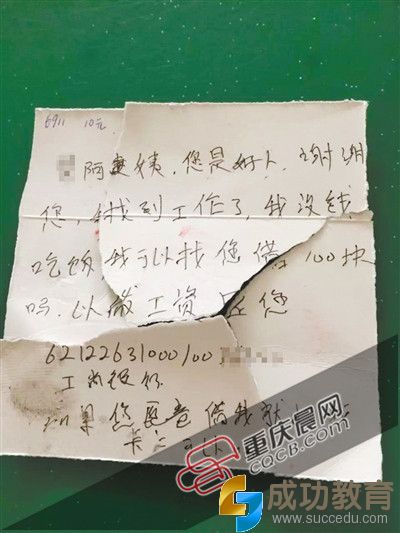 6911 10元
阿姨,您是好人,谢谢
您,我找到工作了,我没钱
吃饭我可以找您借100块
吗.以后工资还您
62122631000100
工商银行
如果您愿意借我就
卡上可以
重庆晨网
CQCB.COM
成功教育
www.succedu.com